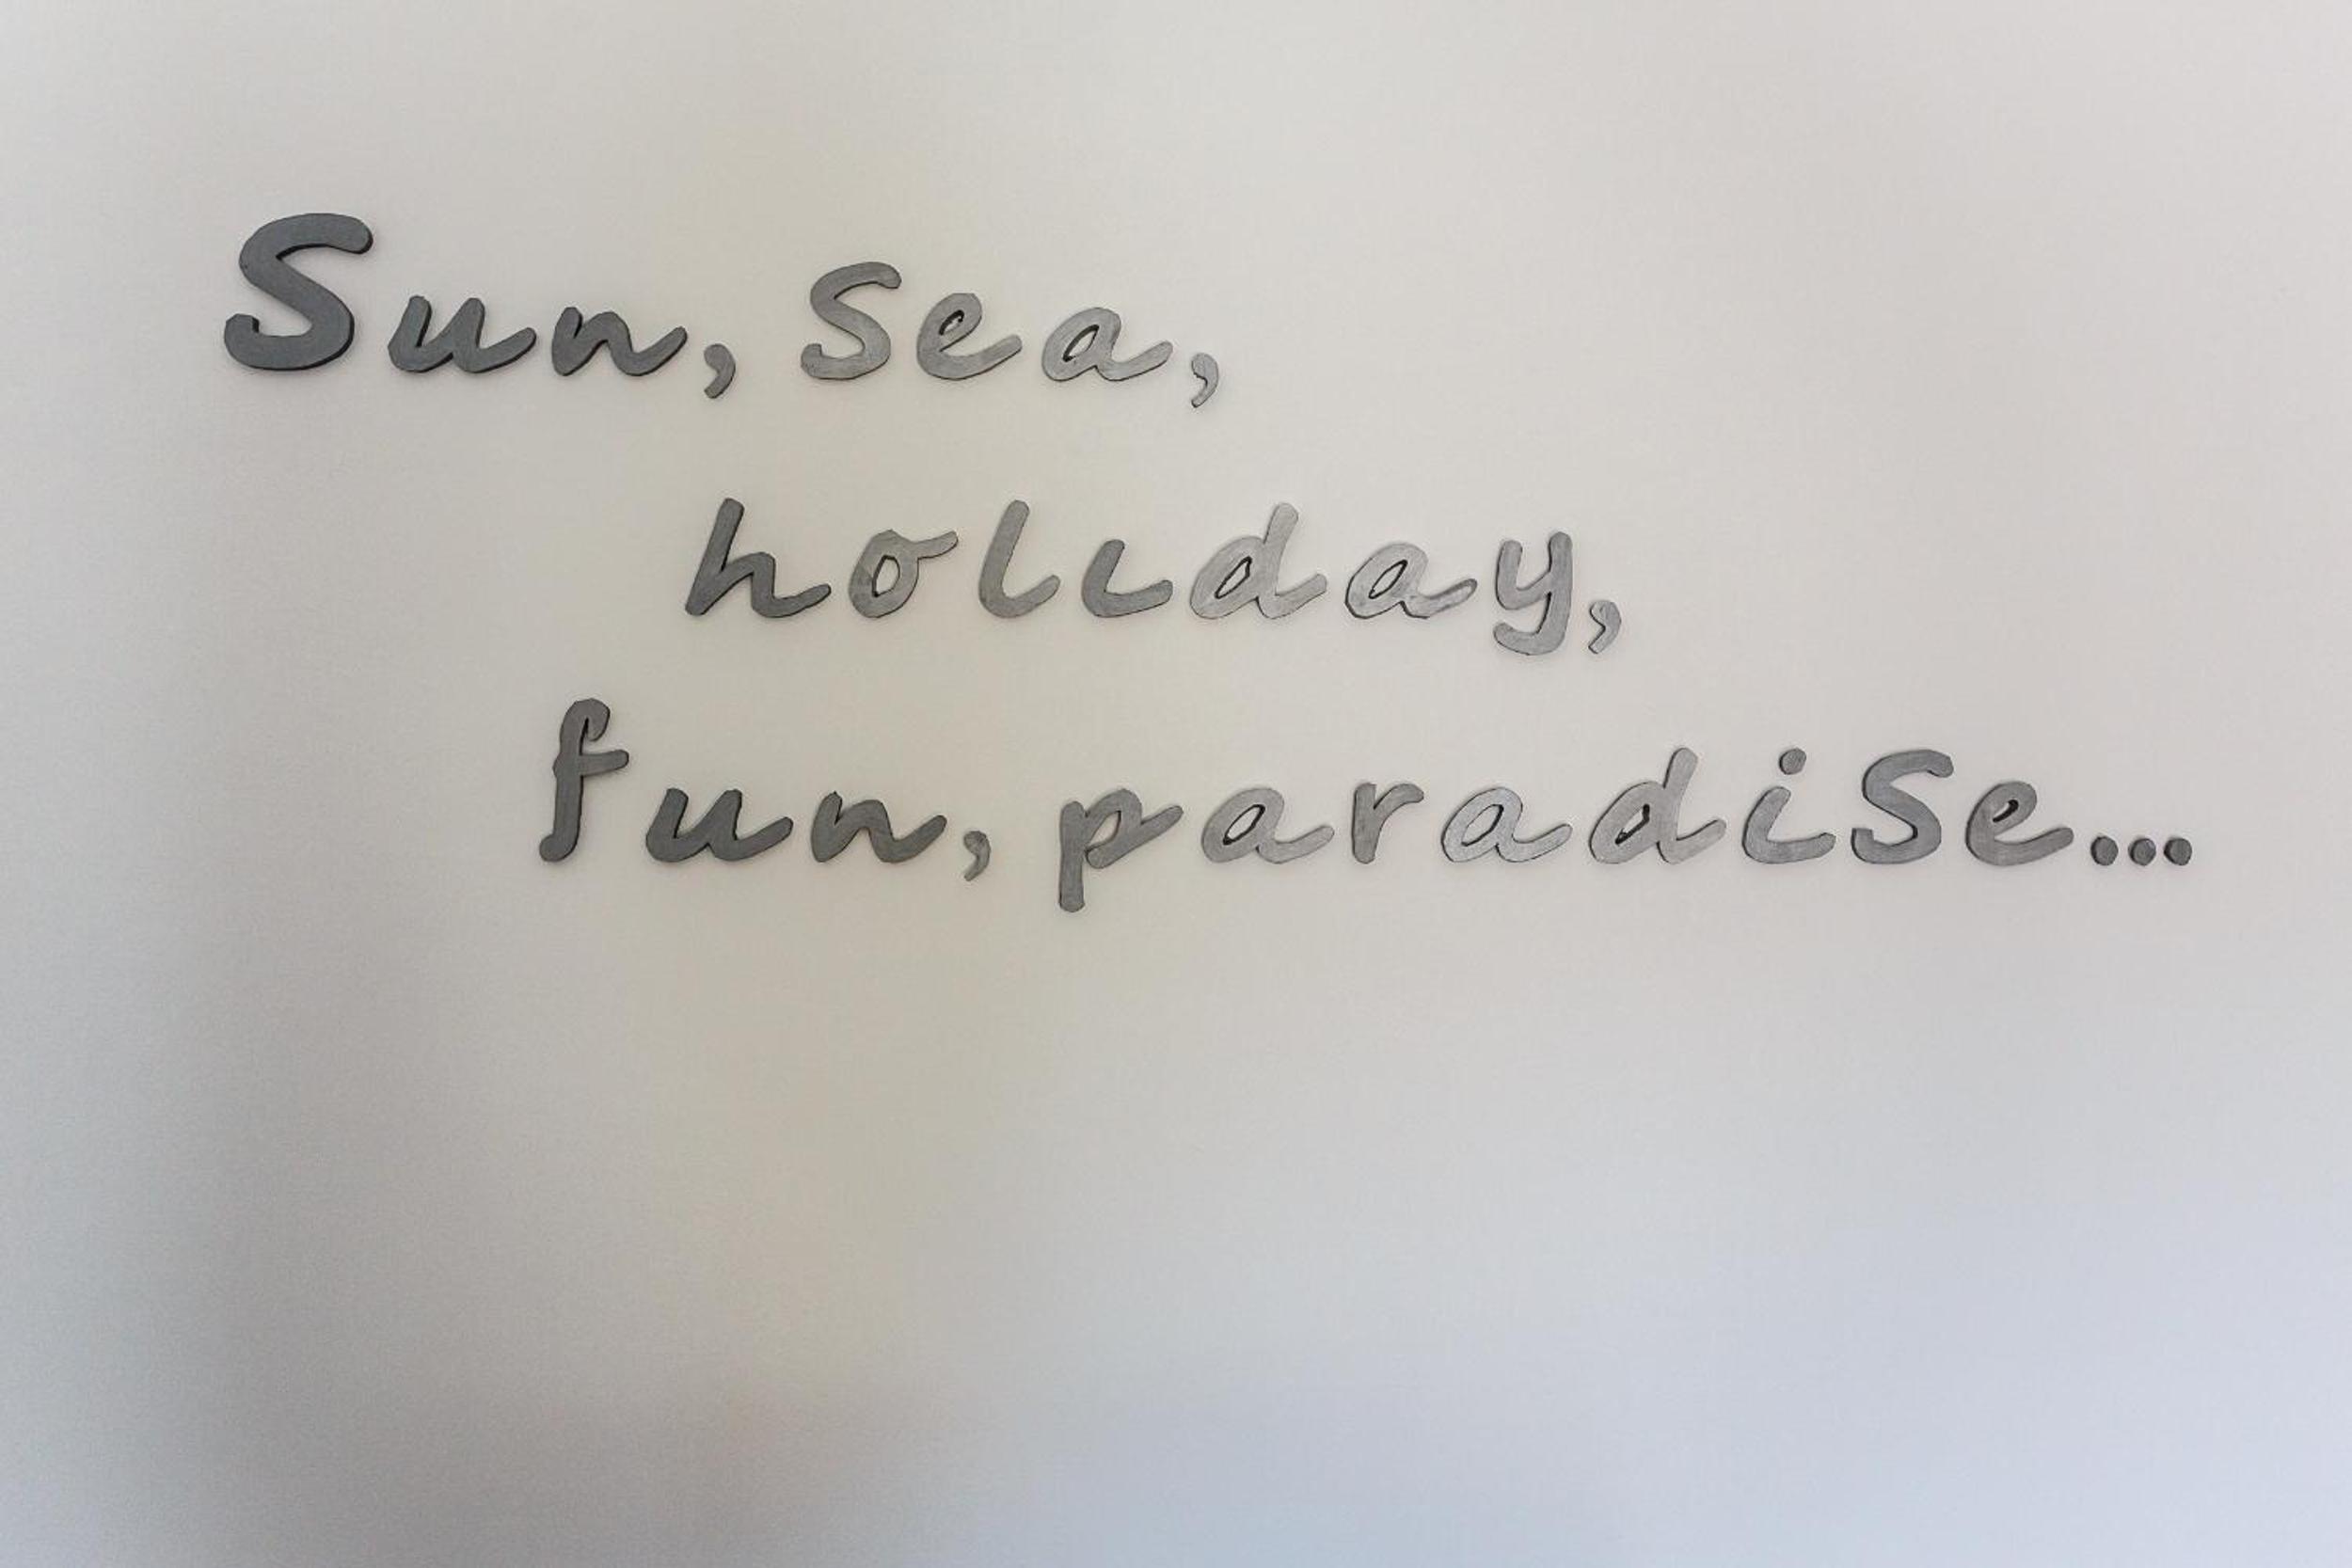 Sun, sea,
holiday,
fun, paradise...